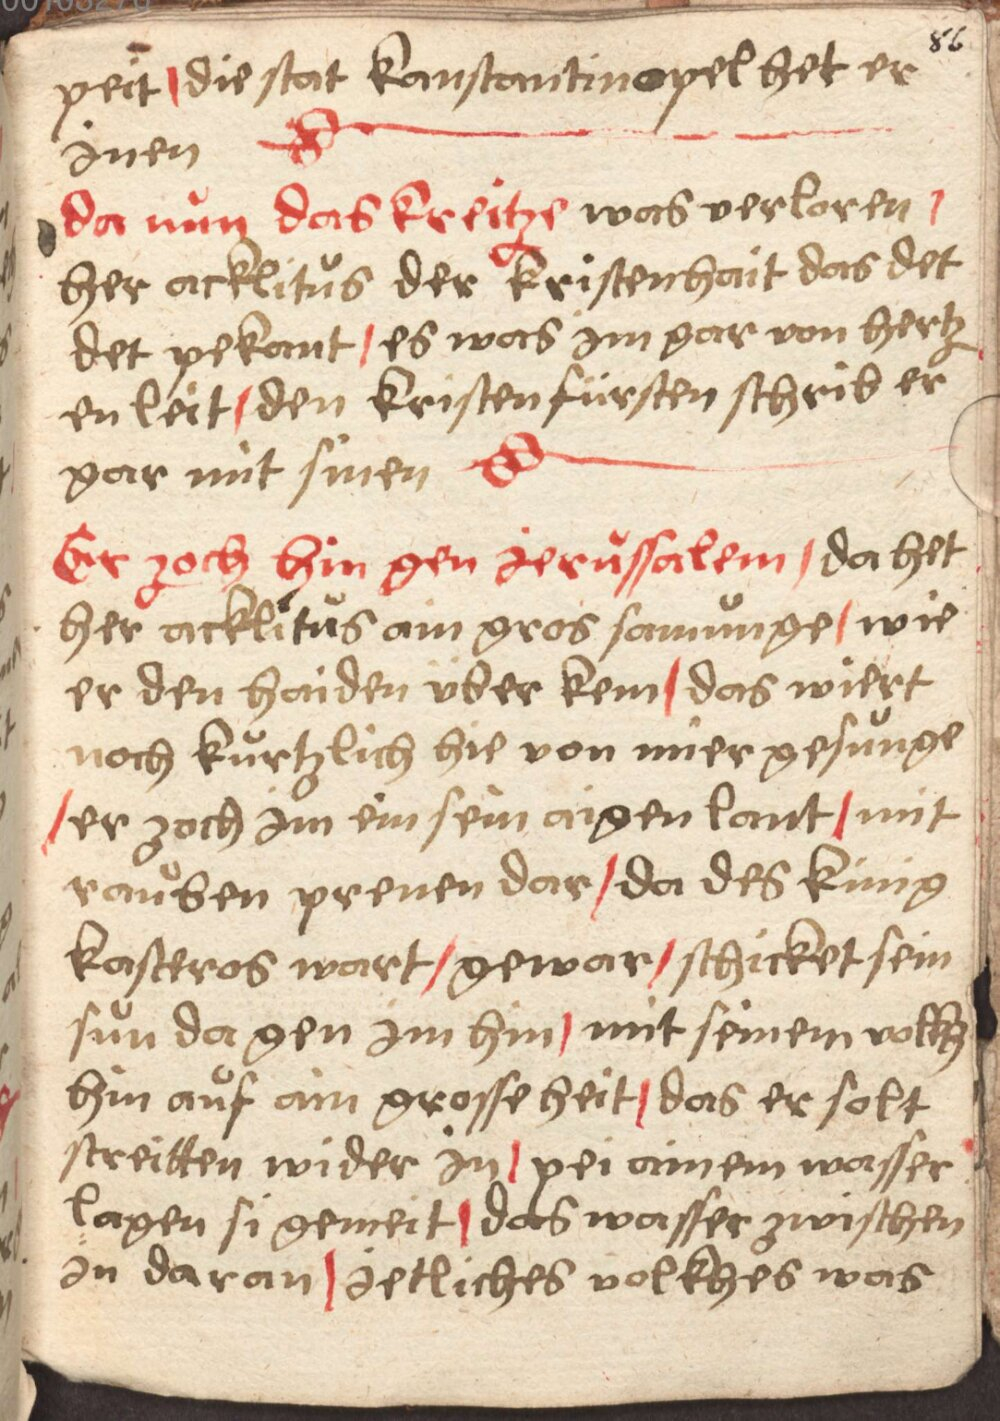 86
peit / die stat kanstantinopel het er
inen
da nun das kreitze was verloren /
her acklitus der kristenhait das det
det pekant / es was im gar von hertz
en leit / den kristen fürsten schrib er
gar mit sinen
Er zoch hin gen ierussalem / da het
her acklitus ain gros samunge / wie
er den haiden über kem / das wiert
noch kurtzlich hie von mier gesunge
/ er zoch im ein sein aigen lant / mit
rauben prenen dar / da des king
kasteros wart / gewar / schicket sein
sun da gen im hin / mit seinem volkh
hin auf ain grosse heit / das er solt
streitten wider in / pei ainem wasser
lagen si gemeit / das wasser zwischen
in daran / ietliches volkhes was